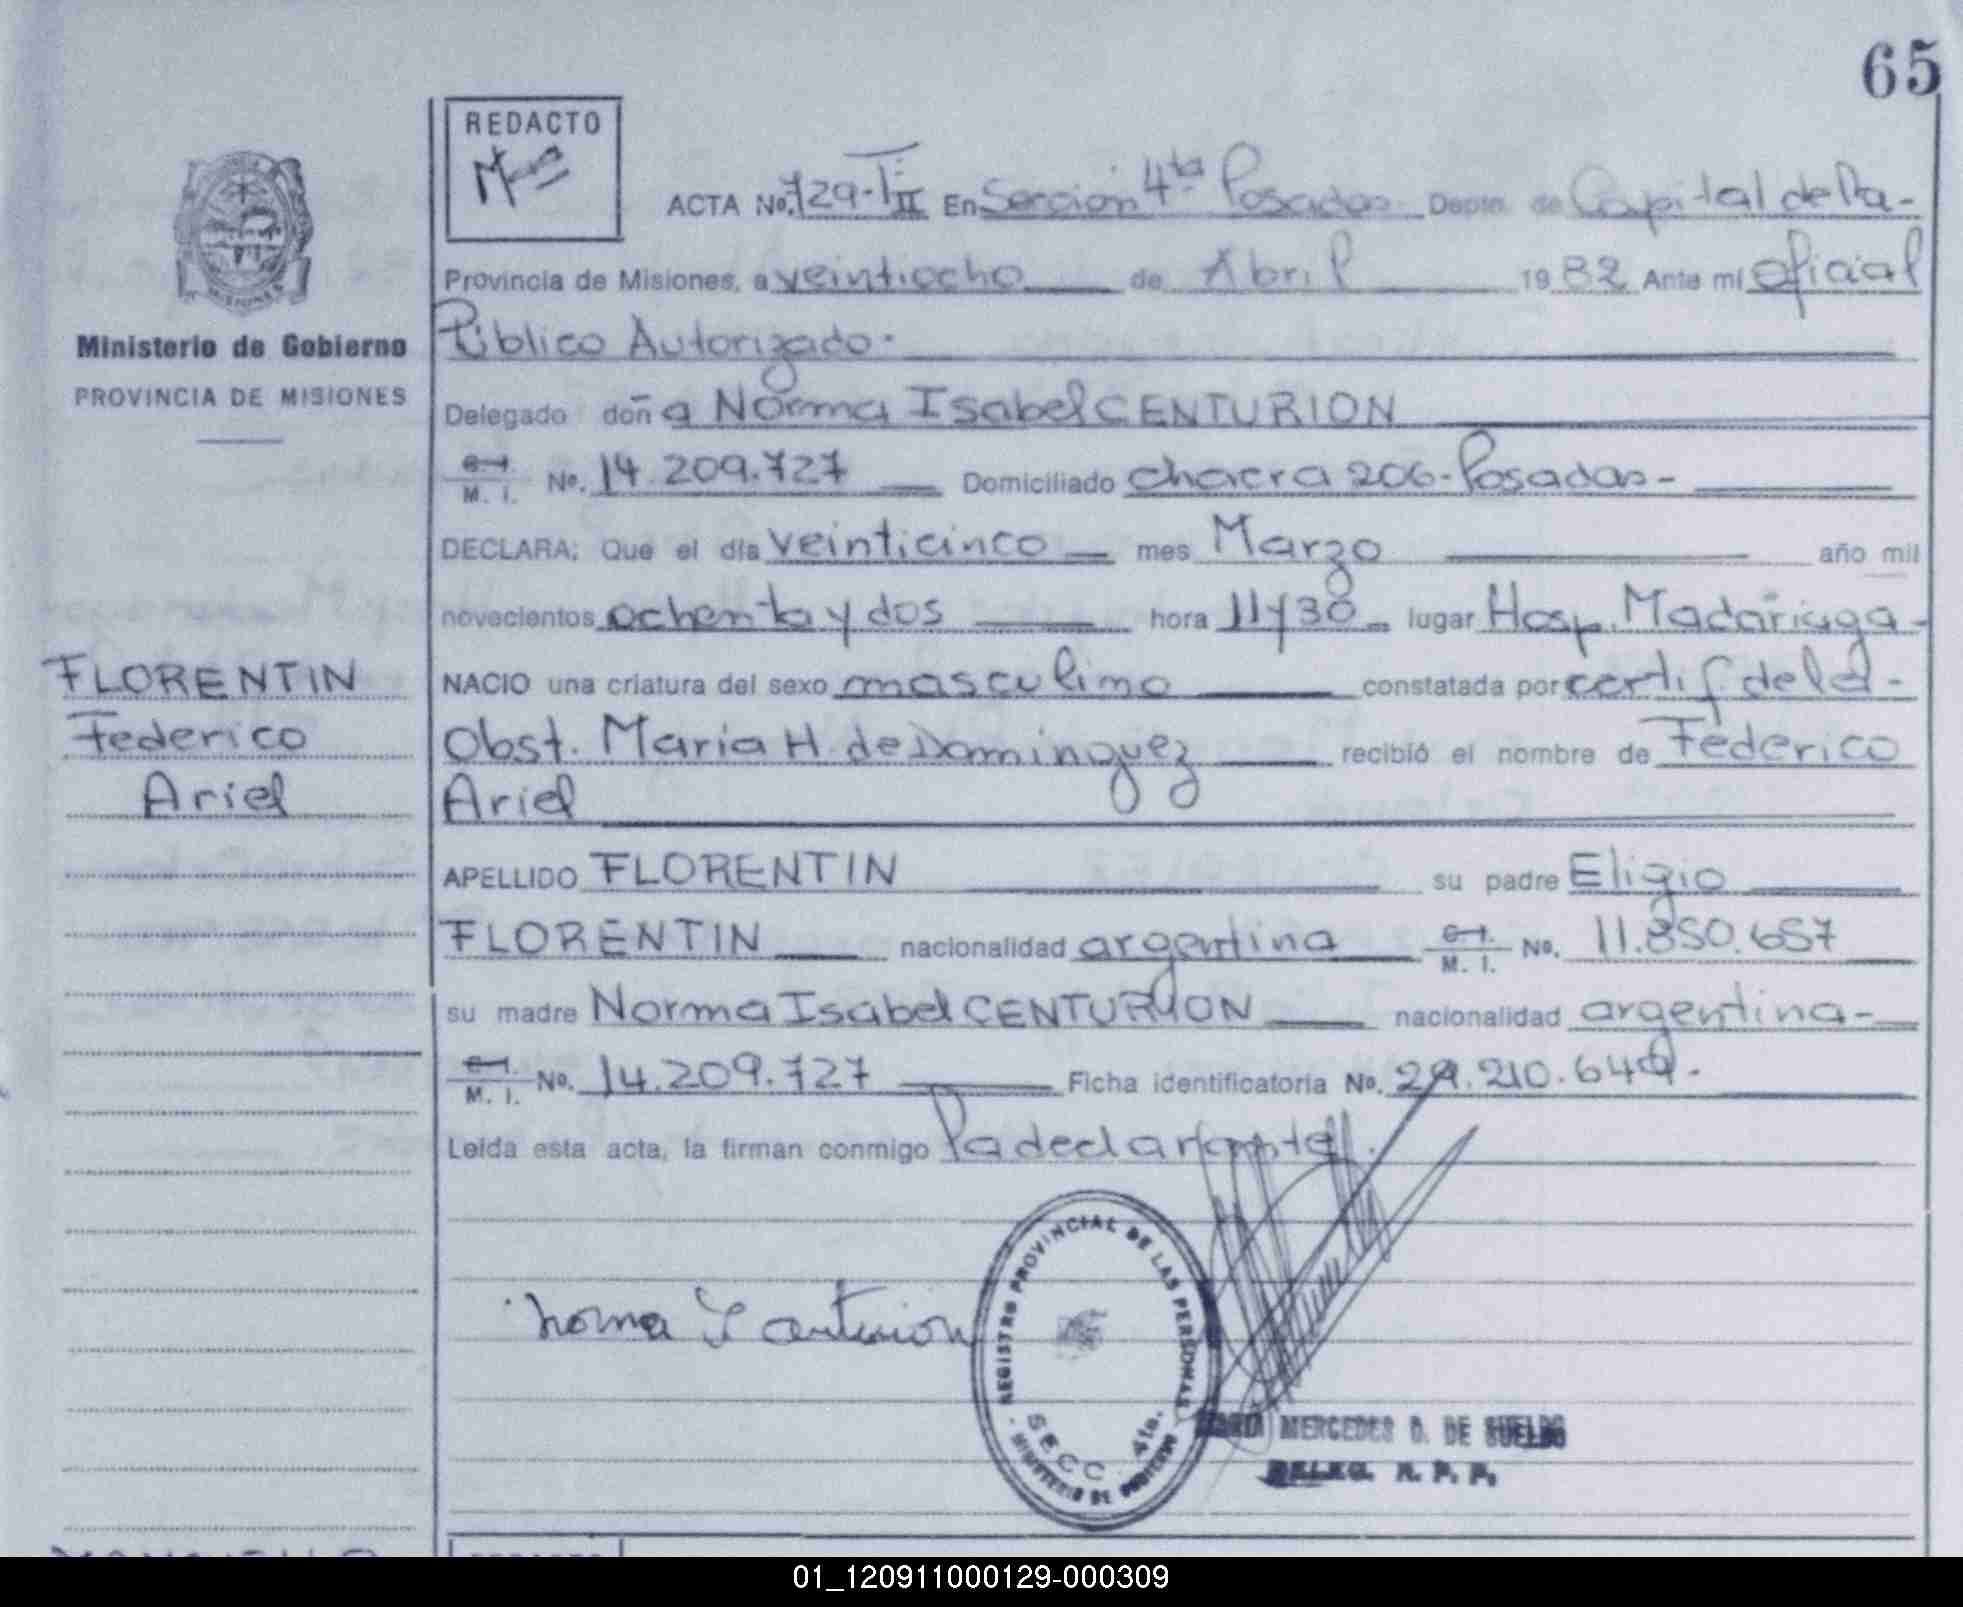 65
REDACTO
ACTA No. 729-T.II En Sección 4ta Posadas Depto. de Capital de la-
Provincia de Misiones, a veintiocho de Abril 1982 Ante mí Oficial
Público Autorizado.
Ministerio de Gobierno
PROVINCIA DE MISIONES
Delegado doña Norma Isabel CENTURION
C.I. M. I. No. 14.209.727 Domiciliado chacra 206-Posadas-
DECLARA: Que el día veinticinco mes Marzo año mil
novecientos ochenta y dos hora 11y30 lugar Hosp. Madariaga-
FLORENTIN
Federico
Ariel
NACIO una criatura del sexo masculino constatada por certif. de la-
Obst. Maria H. de Dominguez recibió el nombre de Federico
Ariel
APELLIDO FLORENTIN su padre Eligio
FLORENTIN nacionalidad argentina C.I. M. I. No. 11.850.657
su madre Norma Isabel CENTURION nacionalidad argentina-
C.I. M. I. No. 14.209.727 Ficha identificatoria No. 29.210.649.
Leída esta acta, la firman conmigo la declarante.
Norma I Centurion
REGISTRO PROVINCIAL DE LAS PERSONAS
SECC. 4ta.
MINISTERIO DE GOBIERNO
MERCEDES D. DE SUELDO
DELEG. R. P. P.
01_120911000129-000309